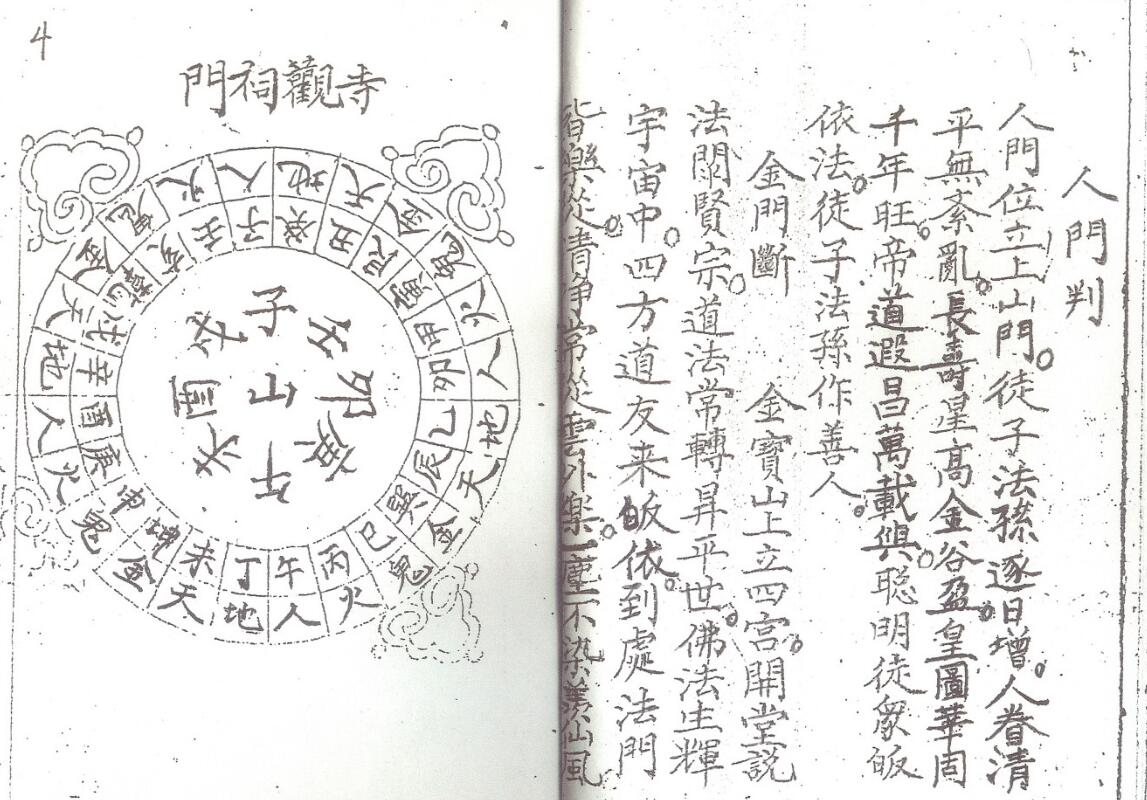 人門判
人門位立上山門。徒子法孫逐日增。人眷清
平無紊亂。長壽星高金谷盈皇圖華固
千年旺。帝道遐昌萬載興。聡明徒衆皈
依法。徒子法孫作善人。
金門斷 金寶山上立四宮。開堂説
法闡賢宗。道法常轉昇平世。佛法生輝
宇宙中。四方道友来皈依。到處法門
皆樂從。清净常從雲外樂。一塵不染羨仙風
4
寺觀祠門
人地天金鬼火人地天金鬼火人地天金鬼火人地天金鬼火
子癸丑艮寅甲卯乙辰巽巳丙午丁未坤申庚酉辛戌乾亥壬
子壬卯庚午酉
山